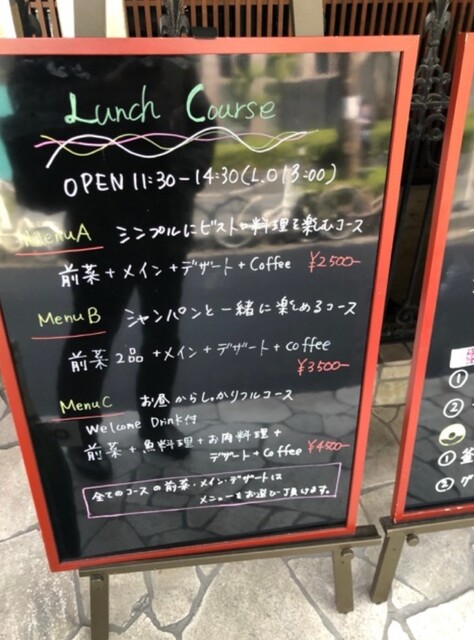 Lunch Course
OPEN 11:30-14:30(L.O 13:00)
Menu A シンプルにビストロ料理を楽むコース
前菜+メイン+デザート+Coffee ¥2500-
Menu B シャンパンと一緒に楽しめるコース
前菜2品+メイン+デザート+coffee
¥3500-
Menu C お昼からしっかりフルコース
Welcome Drink付
前菜+魚料理+お肉料理+
デザート+Coffee ¥4500-
全てのコースの前菜・メイン・デザートは
メニューよりお選び頂けます。
①
②
①
②